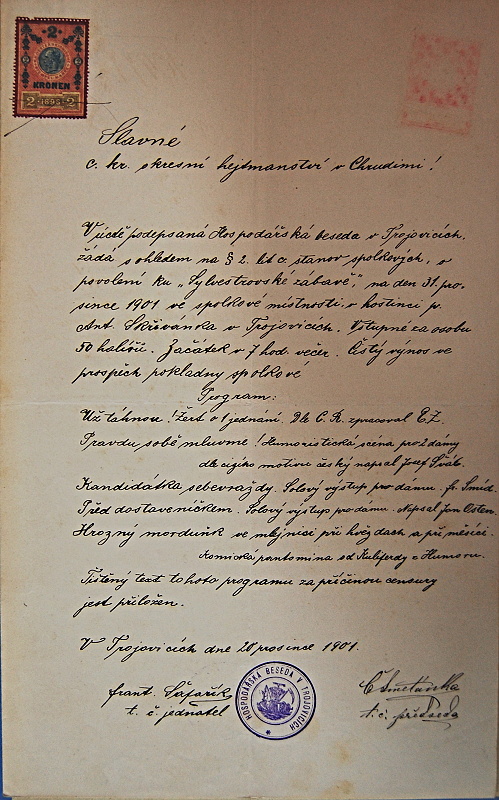 2
KRONEN
2 1898 2
Slavné
c. kr. okresní hejtmanství v Chrudimi!
V úctě podepsaná Hospodářská beseda v Trojovicích,
žádá s ohledem na § 2. lit c. stanov spolkových, o
povolení ku „Sylvestrovské zábavě", na den 31. pro-
since 1901 ve spolkové místnosti v hostinci p.
Ant. Skřivánka v Trojovicích. Vstupné za osobu
50 haléřů. Začátek v 7 hod. večer. Čistý výnos ve
prospěch pokladny spolkové
Program:
Už táhnou! Žert o 1 jednání. Dle C. K. zpracoval E. Ž.
Pravdu sobě mluvme! Humoristická scéna pro 2 dámy
dle cizího motivu český napsal Josef Šváb.
Kandidátka sebevraždy. Solový výstup pro dámu. fr. Šmíd.
Před dostaveníčkem. Solový výstup pro dámu. Napsal Jan Osten.
Hrozný morduňk ve mlejnici při hvězdach a při měsíci.
komická pantomina od Kulferdy z Humoru.
Tištěný text tohoto programu za příčinou censury
jest přiložen.
V Trojovicích dne 20 prosince 1901.
frant. Šafařík
t. č. jednatel
HOSPODÁŘSKÁ BESEDA V TROJOVICÍCH
t. č. předseda